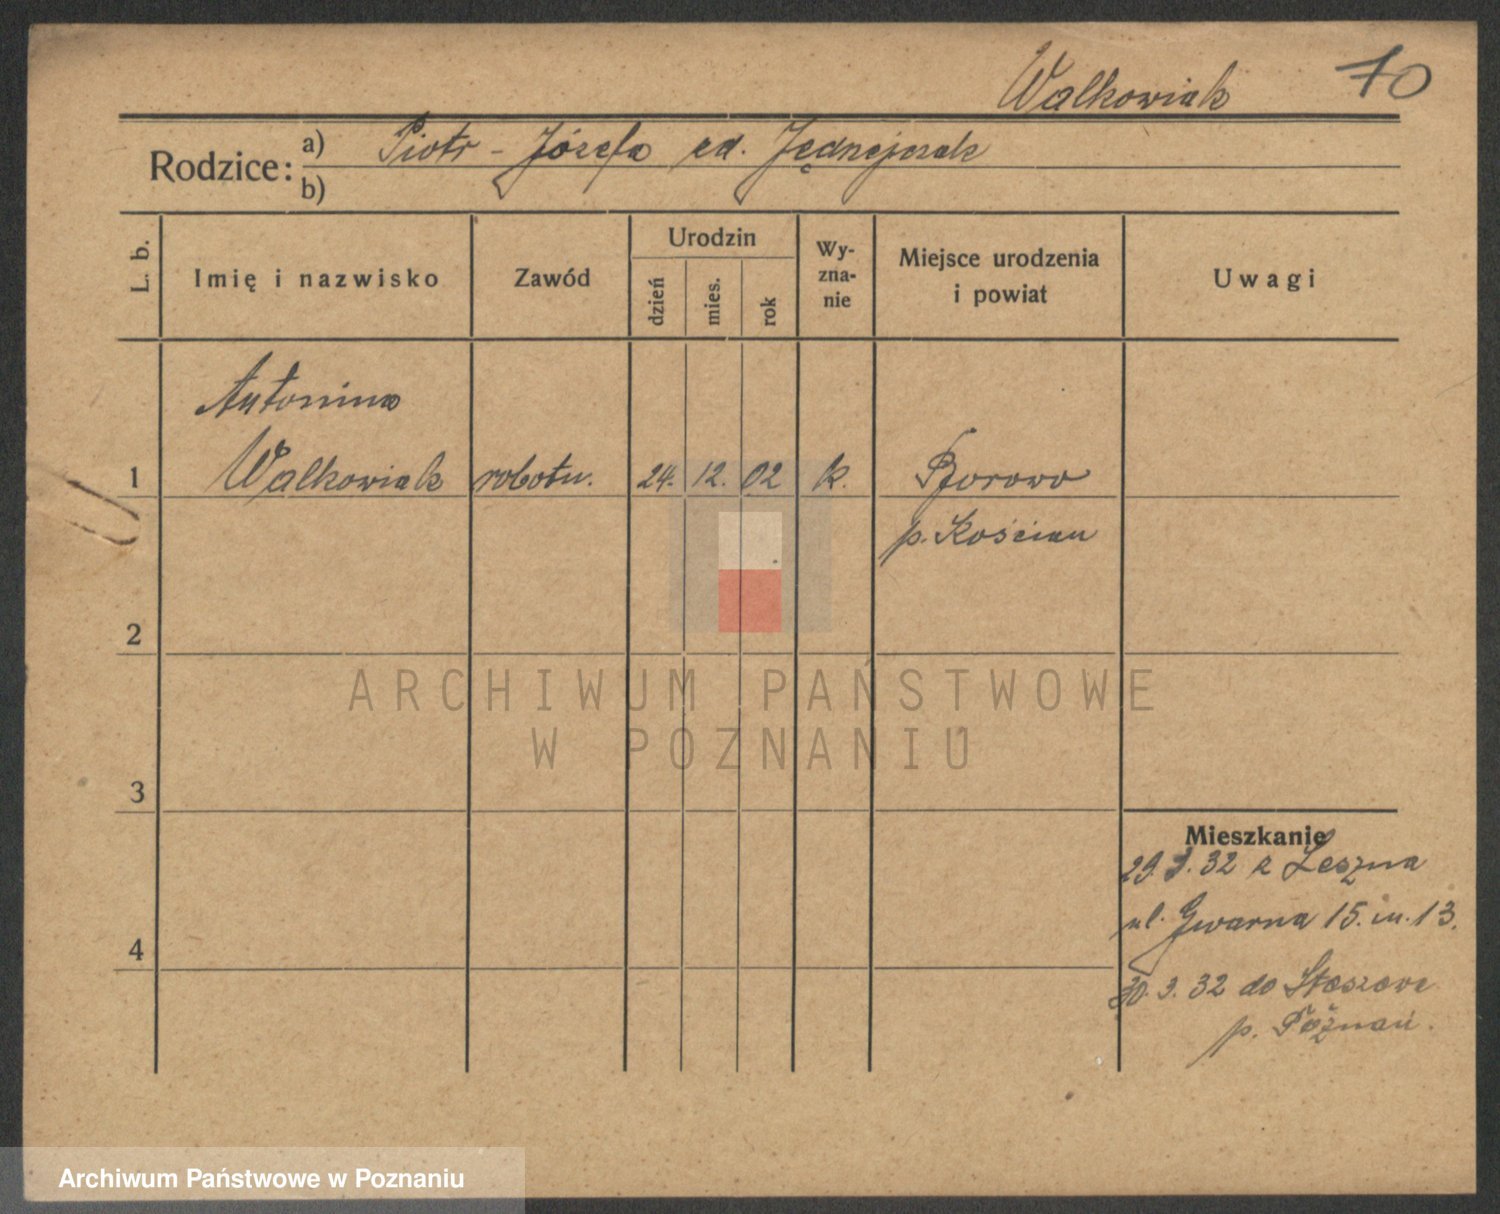 Walkowiak 70
Rodzice: a) Piotr - Józefa zd. Jędrzejczak
b)
L. b. Imię i nazwisko Zawód Urodzin dzień mies. rok Wy-zna-nie Miejsce urodzenia i powiat Uwagi
Antonina
1 Walkowiak robotn. 24. 12. 02 k. Borowo
p. Kościan
2
ARCHIWUM PAŃSTWOWE
W POZNANIU
3
Mieszkanie
29. 3. 32 z Leszna
ul. Gwarna 15. m. 13.
4
30. 3. 32 do
p. Poznań.
Archiwum Państwowe w Poznaniu